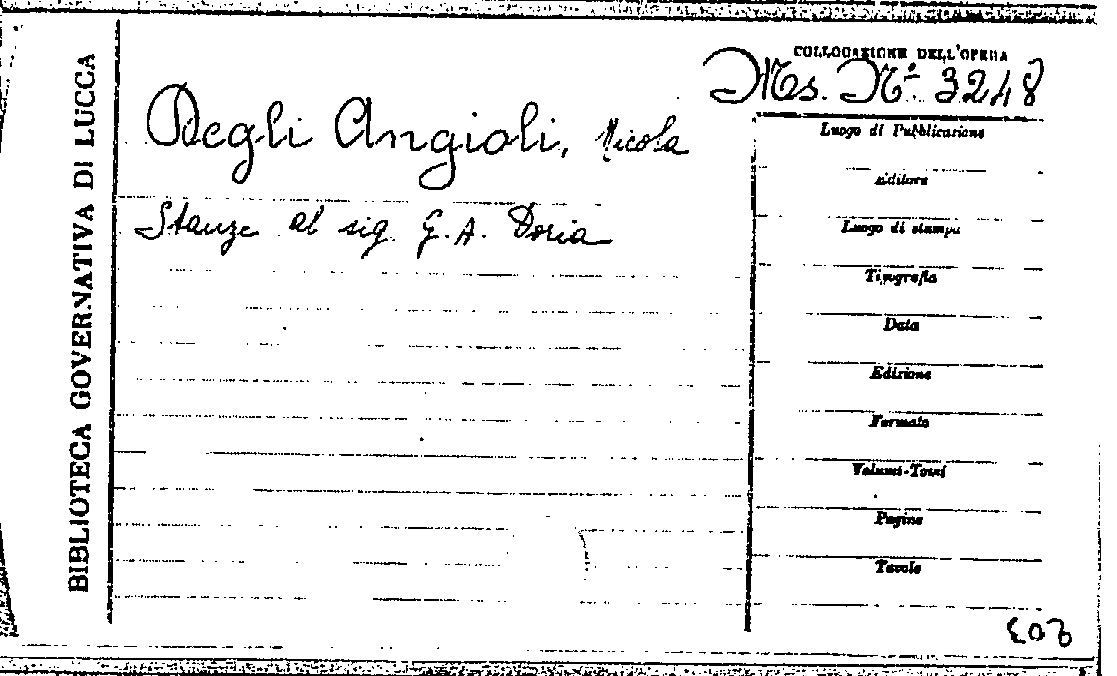 BIBLIOTECA GOVERNATIVA DI LUCCA
COLLOCAZIONE DELL'OPERA
Ms. N.º 3248
Degli Angioli, Nicola
Stanze al sig. G. A. Doria
Luogo di Pubblicazione
Editore
Luogo di stampa
Tipografia
Data
Edizione
Formato
Volumi-Tomi
Pagine
Tavole
203